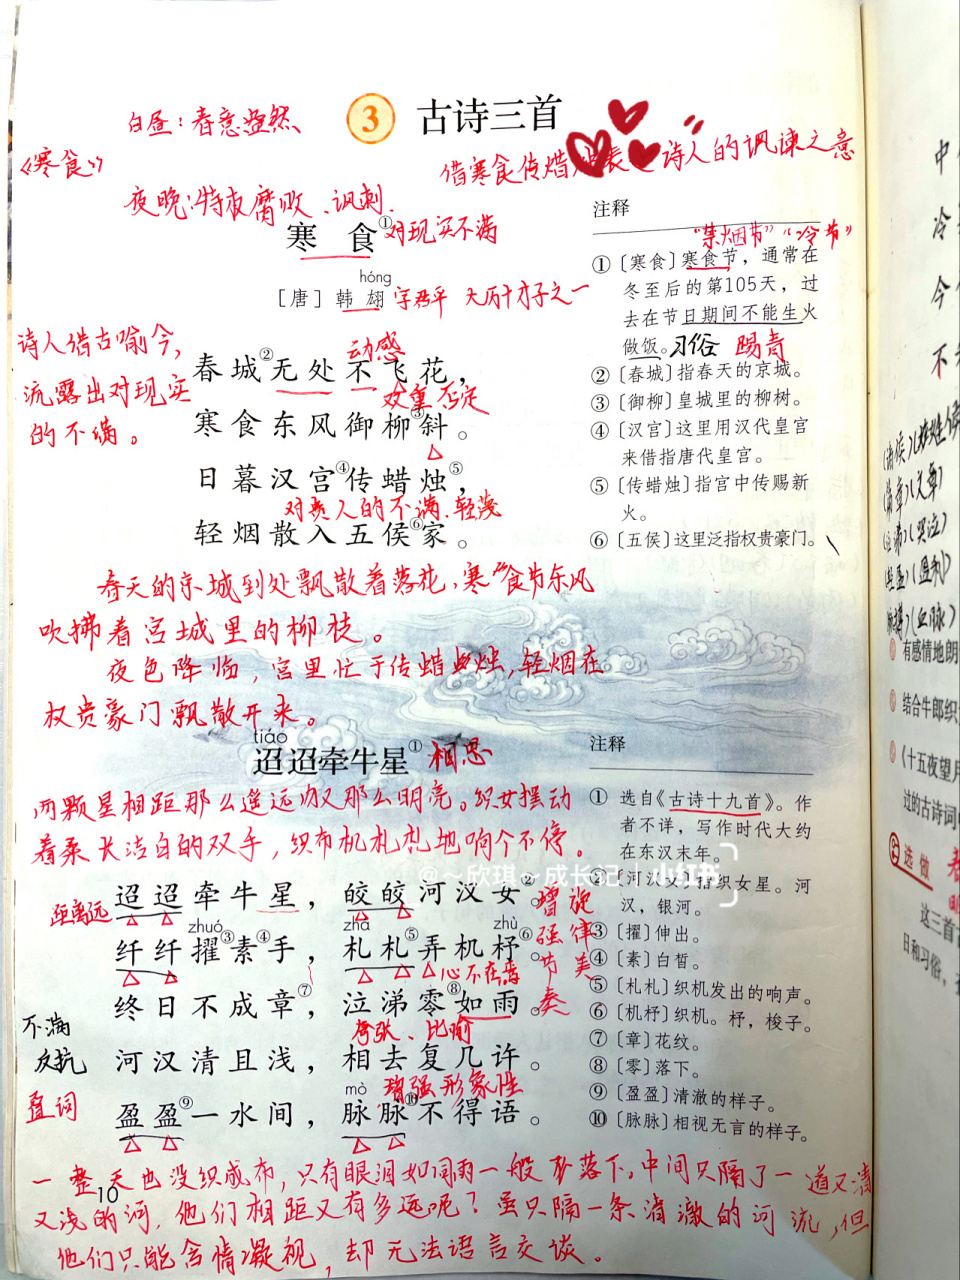 白昼：春意盎然、
3 古诗三首
《寒食》
借寒食传蜡 表 诗人的讽谏之意
夜晚：特权腐败、讽刺.
注释
寒 食①
对现实不满
“禁烟节”“冷节”
①〔寒食〕寒食节，通常在
冬至后的第105天，过
去在节日期间不能生火
做饭。
习俗 踏青
hóng
［唐］韩 翃
字君平 大历十才子之一
诗人借古喻今，
流露出对现实
的不满。
动感
春城②无处不飞花，
双重否定
寒食东风御柳③斜。
日暮汉宫④传蜡烛⑤，
对贵人的不满.轻蔑
轻烟散入五侯⑥家。
②〔春城〕指春天的京城。
③〔御柳〕皇城里的柳树。
④〔汉宫〕这里用汉代皇宫
来借指唐代皇宫。
⑤〔传蜡烛〕指宫中传赐新
火。
⑥〔五侯〕这里泛指权贵豪门。
春天的京城到处飘散着落花，寒食节东风
吹拂着宫城里的柳枝。
夜色降临，宫里忙于传蜡烛，轻烟在
权贵豪门飘散开来。
tiáo
迢迢牵牛星①
相思
两颗星相距那么遥远却又那么明亮。织女摆动
着柔长洁白的双手，织布机札札地响个不停。
距离远
迢迢牵牛星，皎皎河汉女②。
zhuó zhá zhù
纤纤擢③素④手，札札⑤弄机杼⑥。
心不在焉
终日不成章⑦，泣涕零⑧如雨。
夸张、比喻
增强节奏
旋律美
不满
反抗
河汉清且浅，相去复几许。
增强形象性
叠词
mò
盈盈⑨一水间，脉脉⑩不得语。
注释
① 选自《古诗十九首》。作
者不详，写作时代大约
在东汉末年。
②〔河汉女〕指织女星。河
汉，银河。
③〔擢〕伸出。
④〔素〕白皙。
⑤〔札札〕织机发出的响声。
⑥〔机杼〕织机。杼，梭子。
⑦〔章〕花纹。
⑧〔零〕落下。
⑨〔盈盈〕清澈的样子。
⑩〔脉脉〕相视无言的样子。
@～欣琪～成长记｜小红书
一整天也没织成布，只有眼泪如同雨一般 落下。中间只隔了一道又清
又浅的河，他们相距又有多远呢？虽只隔一条清澈的河流，但
他们只能含情凝视，却无法语言交谈。
10
中
冷
今
不
有感情地朗
结合牛郎织
《十五夜望月
过的古诗词中
选做
这三首古
日和习俗，